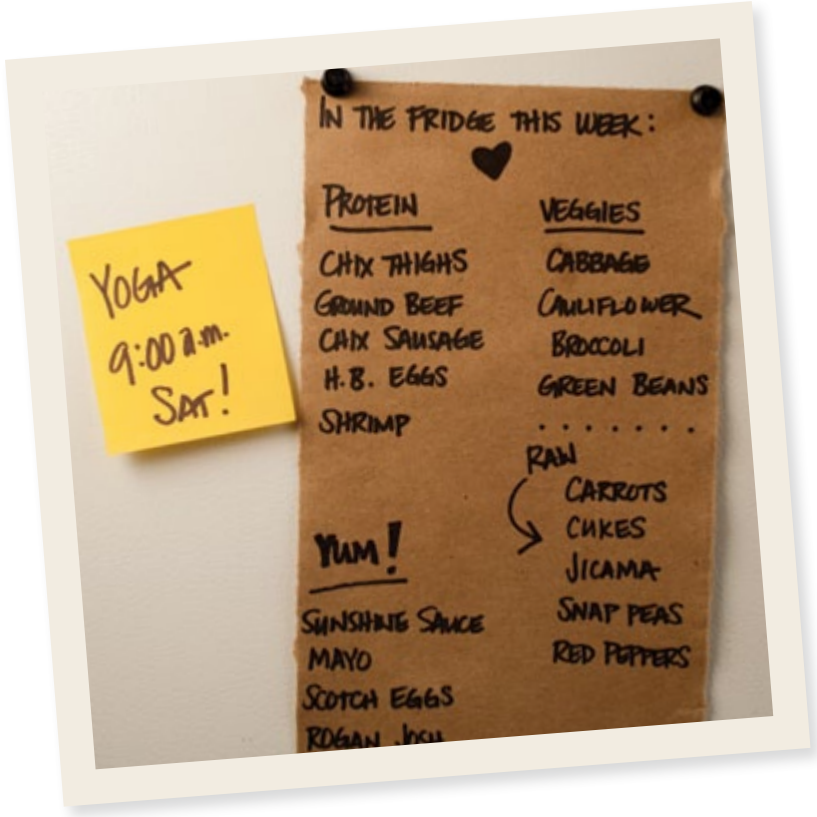 YOGA
9:00 a.m.
SAT!
IN THE FRIDGE THIS WEEK:
PROTEIN
CHIX THIGHS
GROUND BEEF
CHIX SAUSAGE
H.B. EGGS
SHRIMP
YUM!
SUNSHINE SAUCE
MAYO
SCOTCH EGGS
ROGAN JOSH
VEGGIES
CABBAGE
CAULIFLOWER
BROCCOLI
GREEN BEANS
. . . . . . .
RAW
CARROTS
CUKES
JICAMA
SNAP PEAS
RED PEPPERS